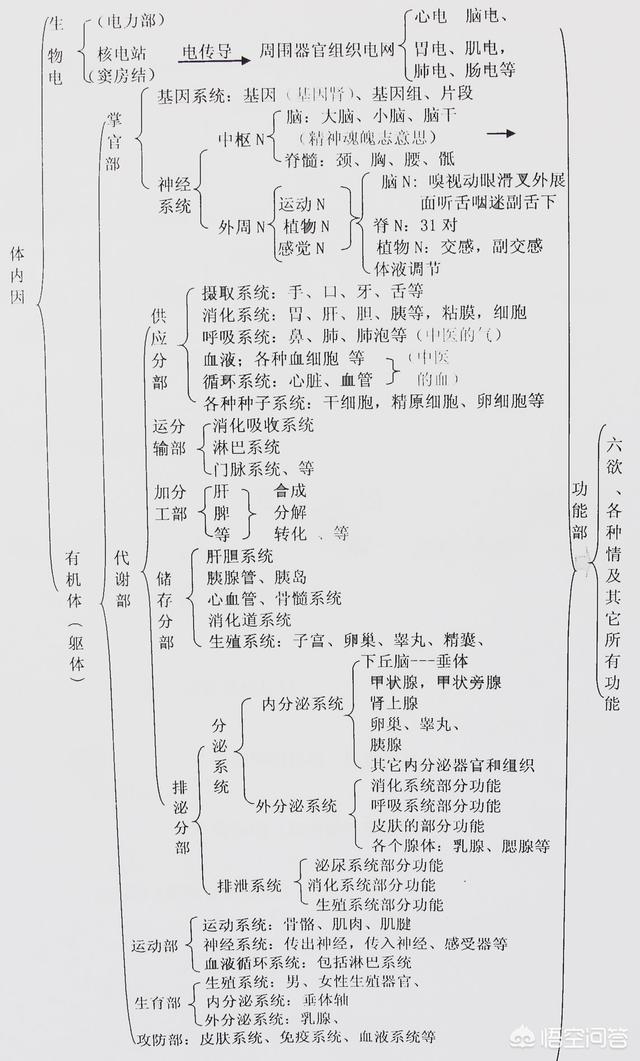 生物电
(电力部)
核电站
(窦房结)
电传导
周围器官组织电网
心电 脑电、
胃电、肌电,
肺电、肠电等
体内因
有机体(躯体)
掌官部
基因系统:基因(基因肾)、基因组、片段
神经系统
中枢N
脑:大脑、小脑、脑干
(精神魂魄志意思)
脊髓:颈、胸、腰、骶
外周N
运动N
植物N
感觉N
脑N:嗅视动眼滑叉外展
面听舌咽迷副舌下
脊N:31对
植物N:交感,副交感
体液调节
代谢部
供应分部
摄取系统:手、口、牙、舌等
消化系统:胃、肝、胆、胰等,粘膜,细胞
呼吸系统:鼻、肺、肺泡等(中医的气)
血液;各种血细胞 等
循环系统:心脏、血管
(中医
的血)
各种种子系统:干细胞,精原细胞、卵细胞等
运分输部
消化吸收系统
淋巴系统
门脉系统、等
加分工部
肝
脾
等
合成
分解
转化 、等
储存分部
肝胆系统
胰腺管、胰岛
心血管、骨髓系统
消化道系统
生殖系统:子宫、卵巢、睾丸、精囊、
排泌分部
分泌系统
内分泌系统
下丘脑---垂体
甲状腺,甲状旁腺
肾上腺
卵巢、睾丸、
胰腺
其它内分泌器官和组织
外分泌系统
消化系统部分功能
呼吸系统部分功能
皮肤的部分功能
各个腺体:乳腺、腮腺等
排泄系统
泌尿系统部分功能
消化系统部分功能
生殖系统部分功能
运动部
运动系统:骨骼、肌肉、肌腱
神经系统:传出神经,传入神经、感受器等
血液循环系统:包括淋巴系统
生育部
生殖系统:男、女性生殖器官、
内分泌系统:垂体轴
外分泌系统:乳腺、
攻防部:皮肤系统、免疫系统、血液系统等
功能部
六欲、各种情及其它所有功能
悟空问答